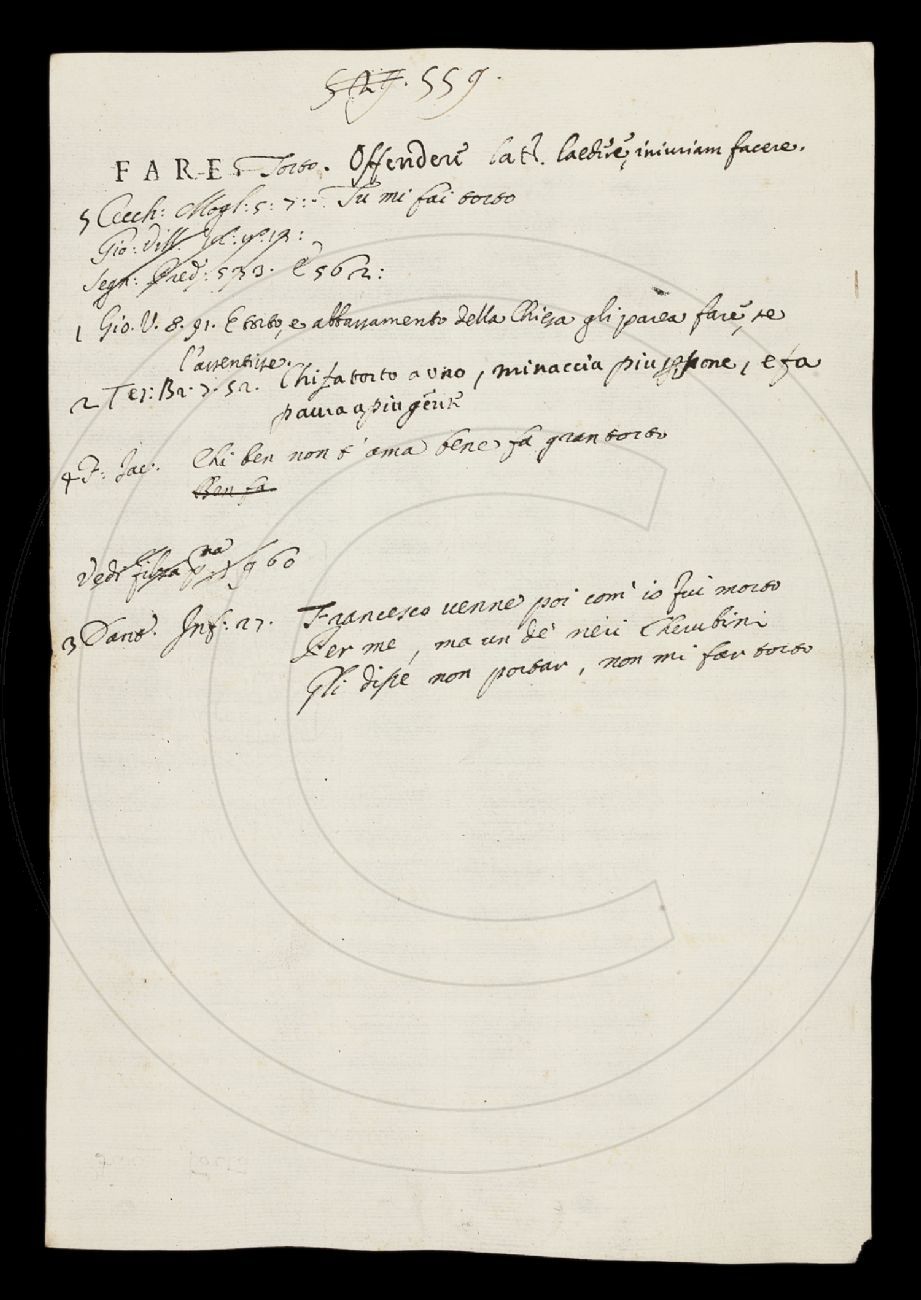 559.
FARE Torto. Offendere lat. laedere, iniuriam facere.
5 Cecch: Mogl: 5: 7: Tu mi fai torto
Gio: Vill:
Segn: Pred: 533. E 562:
1 Gio. V. 8. 91. E torto, e abbassamento della Chiesa gli parea fare, se
l'assentisse.
2 Tes: Br: 7. 52. Chi fa torto a uno, minaccia piu psone, e fa
paura a piu gente
4 F: Jac. Chi ben non t'ama bene fa gran torto
Ben fa
Vedi filza 960
3 Dante. Inf: 27. Francesco venne poi com' io fui morto
Per me, ma un de neri Cherubini
Gli disse non portar, non mi far torto